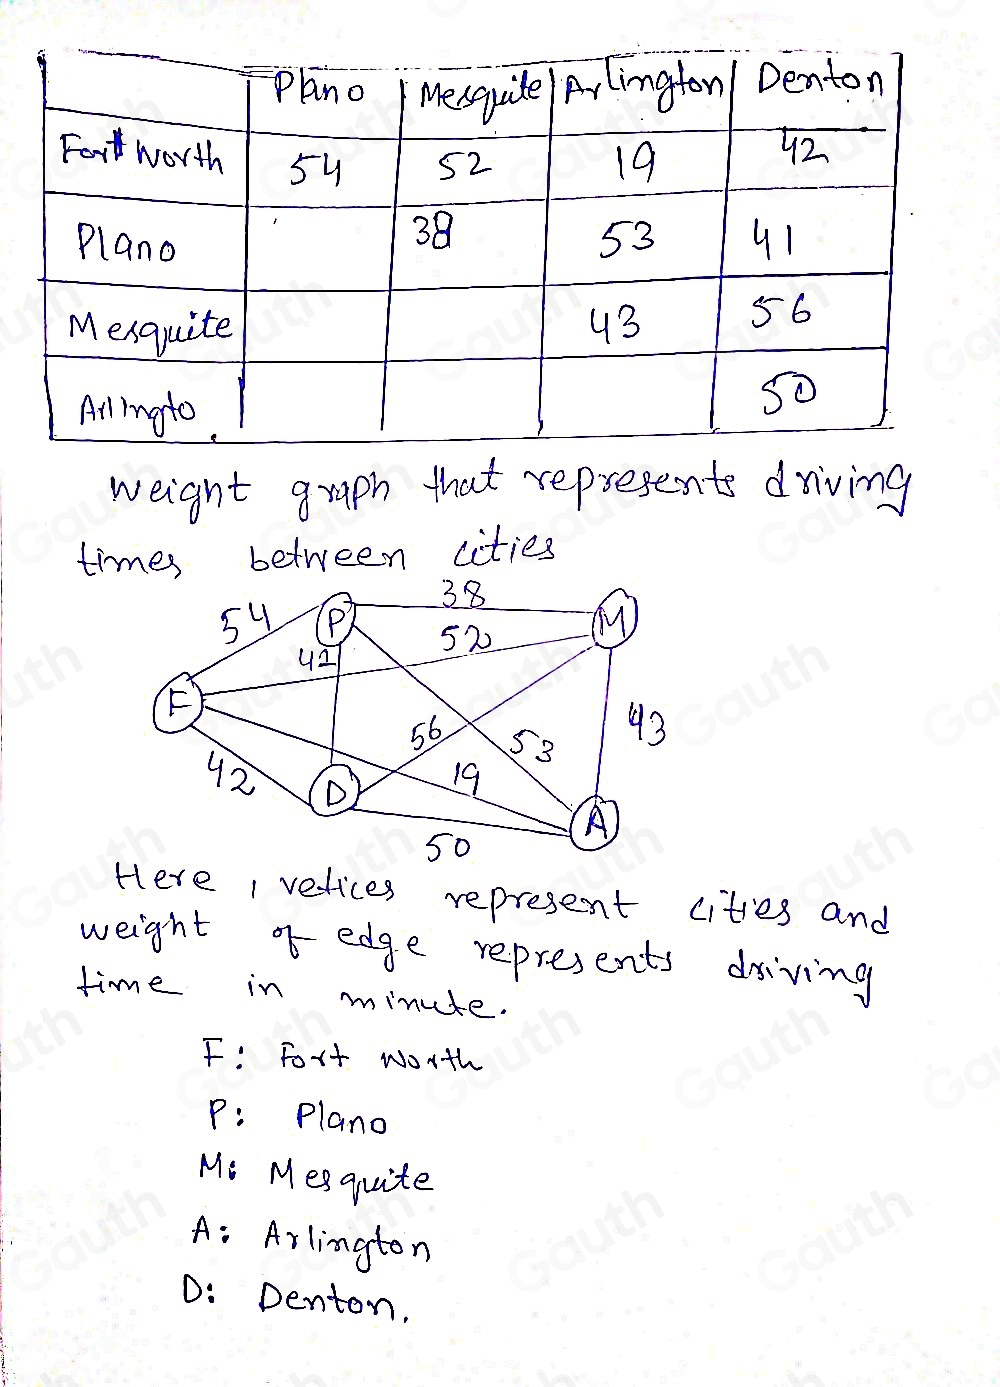 Plano Mesquite Arlington Denton
Fort Worth 54 52 19 42
Plano 38 53 41
Mesquite 43 56
Arlingto 50
weight graph that represents driving
times between cities
54 P 38 M
52
42
F
56 53 43
42 19
D A
50
Here, vetices represent cities and
weight of edge represents driving
time in minute.
F: Fort Worth
P: Plano
M: Mesquite
A: Arlington
D: Denton.